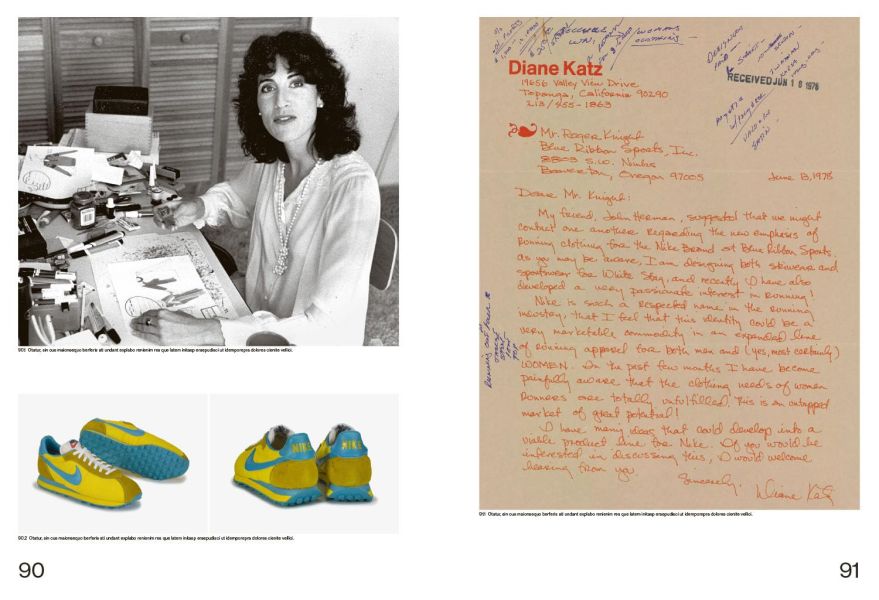 90.1 Otatur, sin cus maionsequo berferis ati undant explabo renienim rea que latem initasp ersepudisci ut idemporepra dolores cienite vellici.
NIKE
90.2 Otatur, sin cus maionsequo berferis ati undant explabo renienim rea que latem initasp ersepudisci ut idemporepra dolores cienite vellici.
90
WOMANS
RECEIVED JUN 1 8 1978
Diane Katz
19656 Valley View Drive
Topanga, California 90290
213/455-1863
Mr. Roger Knight
Blue Ribbon Sports, Inc.
8809 S.W. Nimbs
Beaverton, Oregon 97005
June 13, 1978
Dear Mr. Knight:
My friend, John Herman, suggested that we might
contact one another regarding the new emphasis of
running clothing for the Nike Brand at Blue Ribbon Sports.
As you may be aware, I am designing both skiwear and
sportswear for White Stag, and recently I have also
developed a very passionate interest in running!
Nike is such a respected name in the running
industry, that I feel that this identity could be a
very marketable commodity in an expanded line
of running apparel for both men and (yes, most certainly)
WOMEN. In the past few months I have become
painfully aware that the clothing needs of women
runners are totally unfulfilled. This is an untapped
market of great potential!
I have many ideas that could develop into a
viable product line for Nike. If you would be
interested in discussing this, I would welcome
hearing from you.
Sincerely,
Diane Katz
91.1 Otatur, sin cus maionsequo berferis ati undant explabo renienim rea que latem initasp ersepudisci ut idemporepra dolores cienite vellici.
91